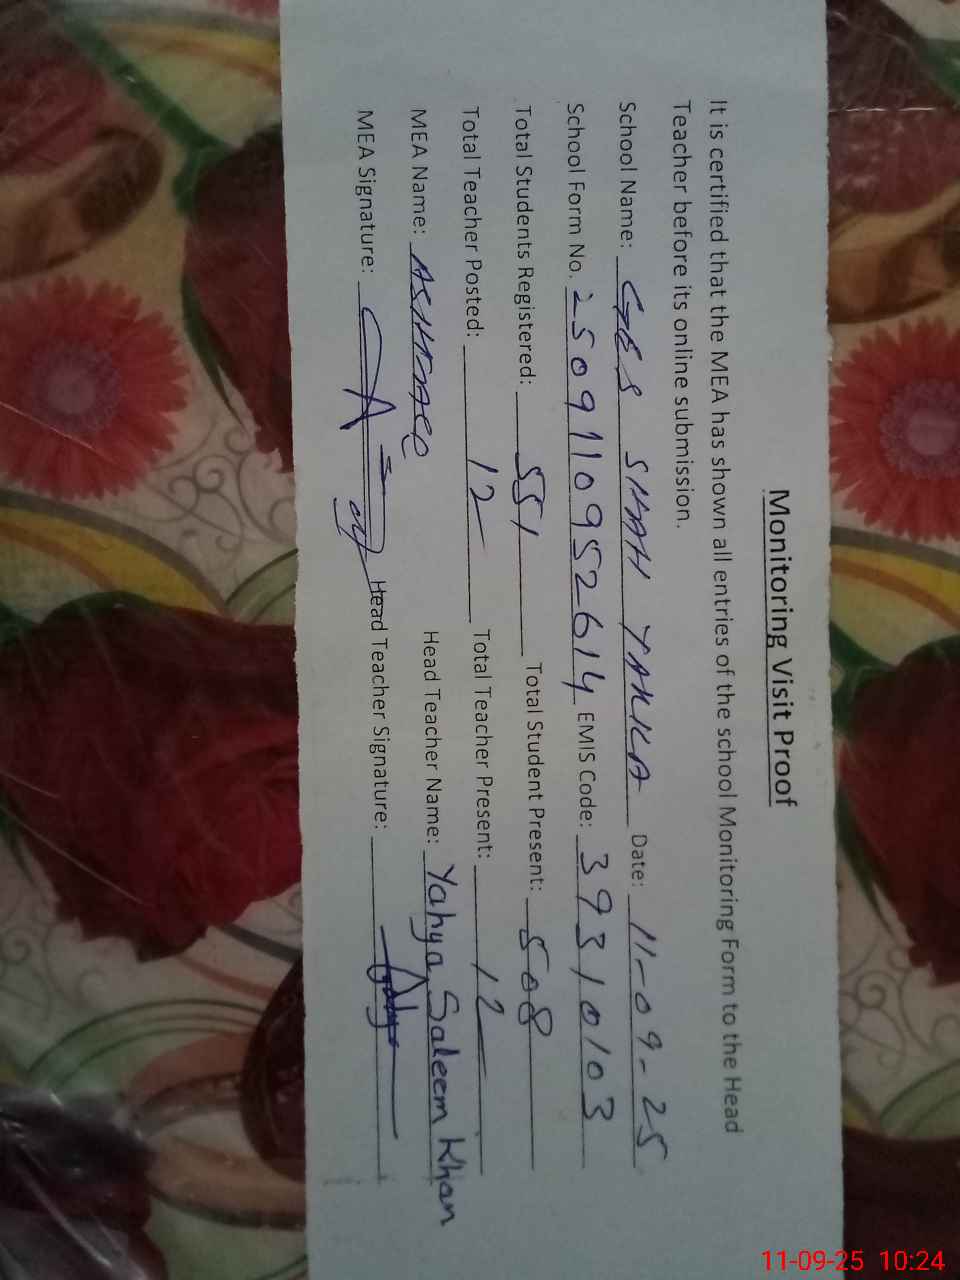 Monitoring Visit Proof
It is certified that the MEA has shown all entries of the school Monitoring Form to the Head
Teacher before its online submission.
School Name: GES SHAH YAKKA Date: 11-09-25
School Form No. 2509110952614 EMIS Code: 39310103
Total Students Registered: 551 Total Student Present: 508
Total Teacher Posted: 12 Total Teacher Present: 12
MEA Name: Head Teacher Name: Yahya Saleem Khan
MEA Signature: Head Teacher Signature:
11-09-25 10:24